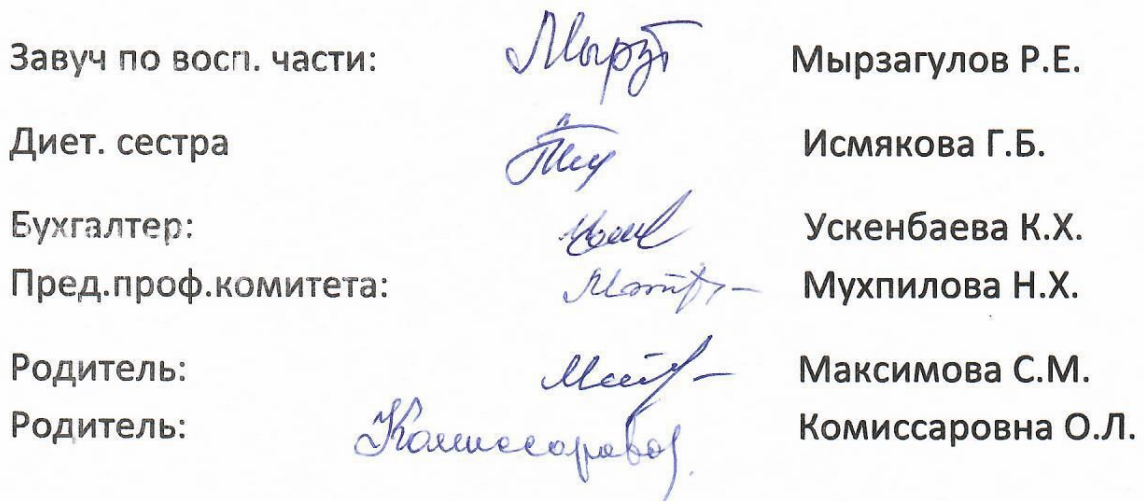 Завуч по восп. части: Мырз Мырзагулов Р.Е.
Диет. сестра Исмякова Г.Б.
Бухгалтер: Ускенбаева К.Х.
Пред.проф.комитета: Мухпилова Н.Х.
Родитель: Максимова С.М.
Родитель: Комиссарова Комиссаровна О.Л.